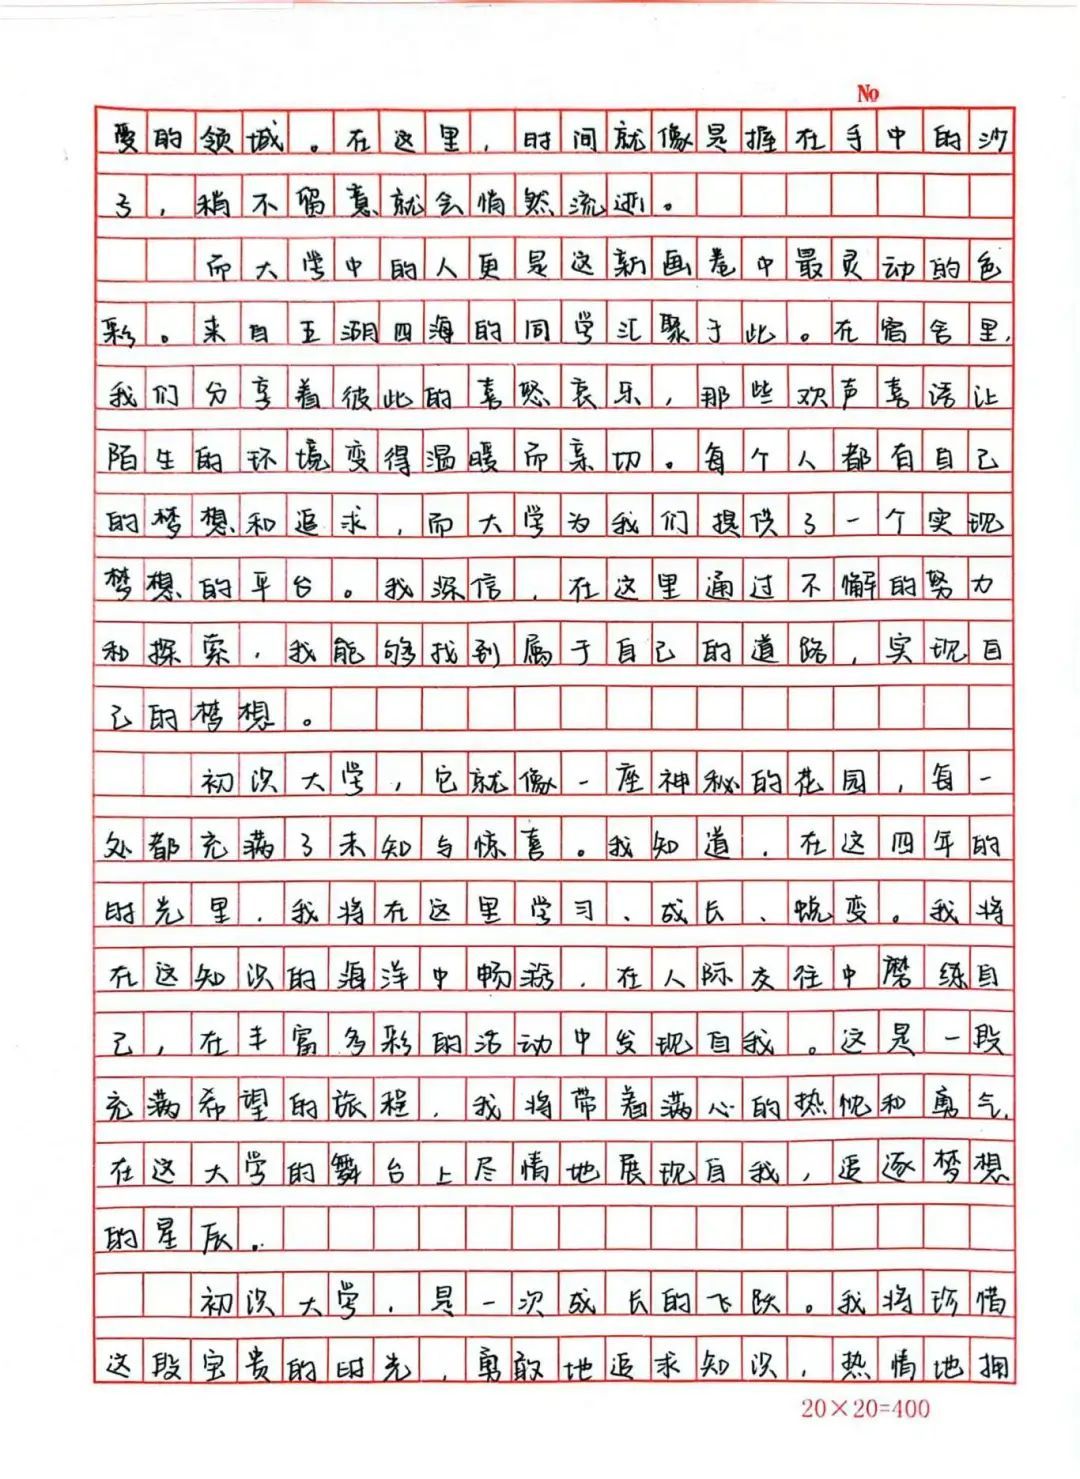 No
爱的领域。在这里，时间就像是握在手中的沙
子，稍不留意就会悄然流逝。
而大学中的人更是这新画卷中最灵动的色
彩。来自五湖四海的同学汇聚于此。在宿舍里，
我们分享着彼此的喜怒哀乐，那些欢声喜语让
陌生的环境变得温暖而亲切。每个人都有自己
的梦想和追求，而大学为我们提供了一个实现
梦想的平台。我深信，在这里通过不懈的努力
和探索，我能够找到属于自己的道路，实现自
己的梦想。
初识大学，它就像一座神秘的花园，每一
处都充满了未知与惊喜。我知道，在这四年的
时光里，我将在这里学习、成长、蜕变。我将
在这知识的海洋中畅游，在人际交往中磨练自
己，在丰富多彩的活动中发现自我。这是一段
充满希望的旅程，我将带着满心的热忱和勇气，
在这大学的舞台上尽情地展现自我，追逐梦想
的星辰。
初识大学，是一次成长的飞跃。我将珍惜
这段宝贵的时光，勇敢地追求知识，热情地拥
20×20=400